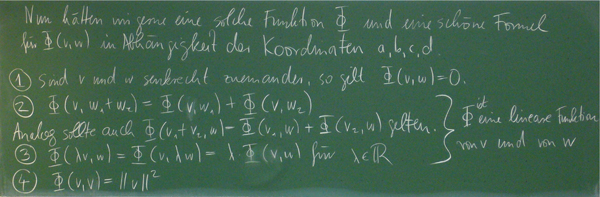 Nun hätten wir gerne eine solche Funktion Φ und eine schöne Formel
für Φ(v,w) in Abhängigkeit der Koordinaten a,b,c,d.
① Sind v und w senkrecht zueinander, so gilt Φ(v,w)=0.
② Φ(v,w₁+w₂) = Φ(v,w₁) + Φ(v,w₂)
Analog sollte auch Φ(v₁+v₂,w) = Φ(v₁,w) + Φ(v₂,w) gelten.
③ Φ(λv,w) = Φ(v,λw) = λ·Φ(v,w) für λ∈ℝ
④ Φ(v,v) = ||v||²
Φ ist
eine lineare Funktion
von v und von w